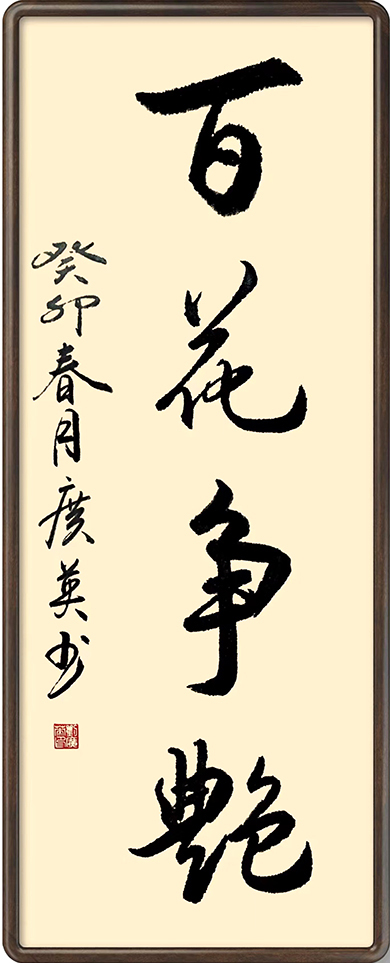 百花争艳
癸卯春月广英书